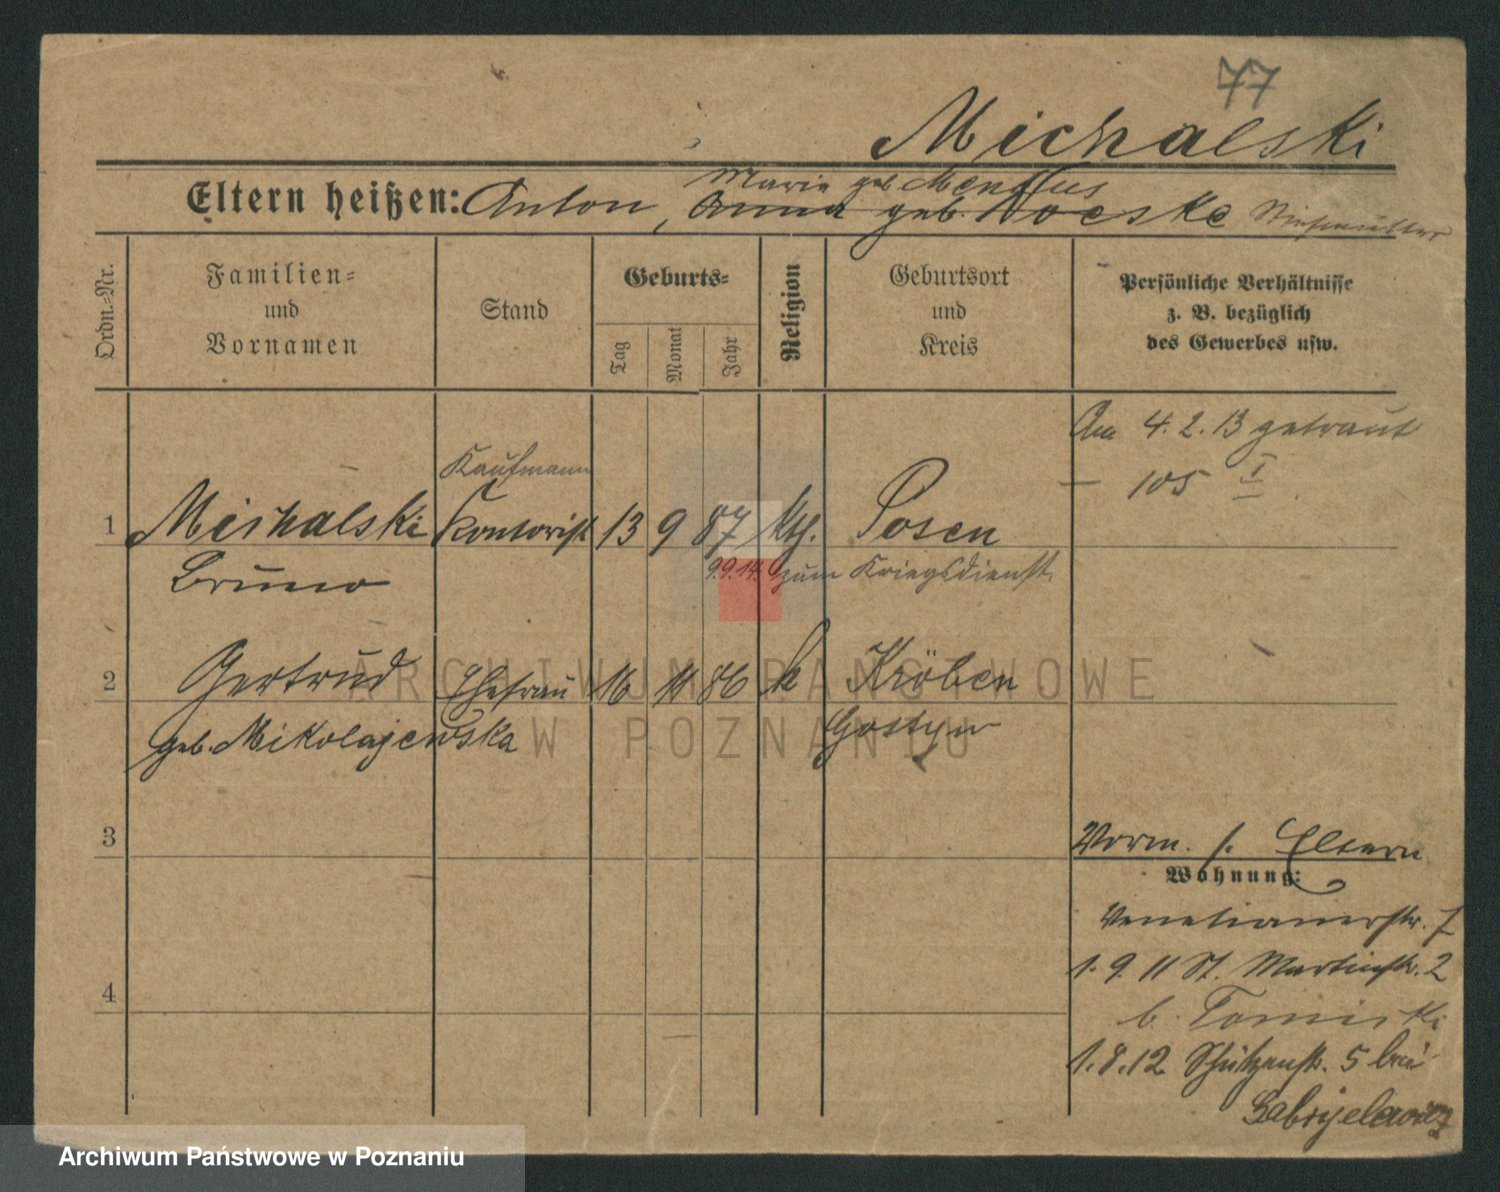 77
Michalski
Marie geb. Menttus
Eltern heißen: Anton, Anna geb. Noeske Stiefmutter
Ordn.-Nr.
Familien-
und
Vornamen
Stand
Geburts-
Tag
Monat
Jahr
Religion
Geburtsort
und
Kreis
Persönliche Verhältnisse
z. B. bezüglich
des Gewerbes usw.
Am 4.2.13 getraut
105 I
Kaufmann
1 Michalski Kontorist 13 9 87 kth. Posen
Bruno 9.9.14. zum Kriegsdienst.
2 Gertrud Ehefrau 16 11 86 k Kröben
geb. Mikolajewska Gostyn
ARCHIWUM PAŃSTWOWE
W POZNANIU
3
Vorm. s. Eltern
Wohnung:
Venetianerstr. 7
1.9.11 St. Martinstr. 2
4
b. Tomiski
1.8.12 Schützenstr. 5 bei
Gabryelewicz
Archiwum Państwowe w Poznaniu